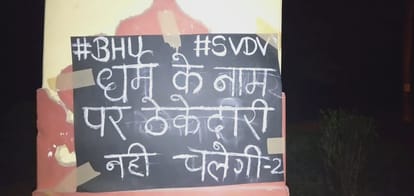 #BHU #SVDV
धर्म के नाम
पर ठेकेदारी
नही चलेगी-2